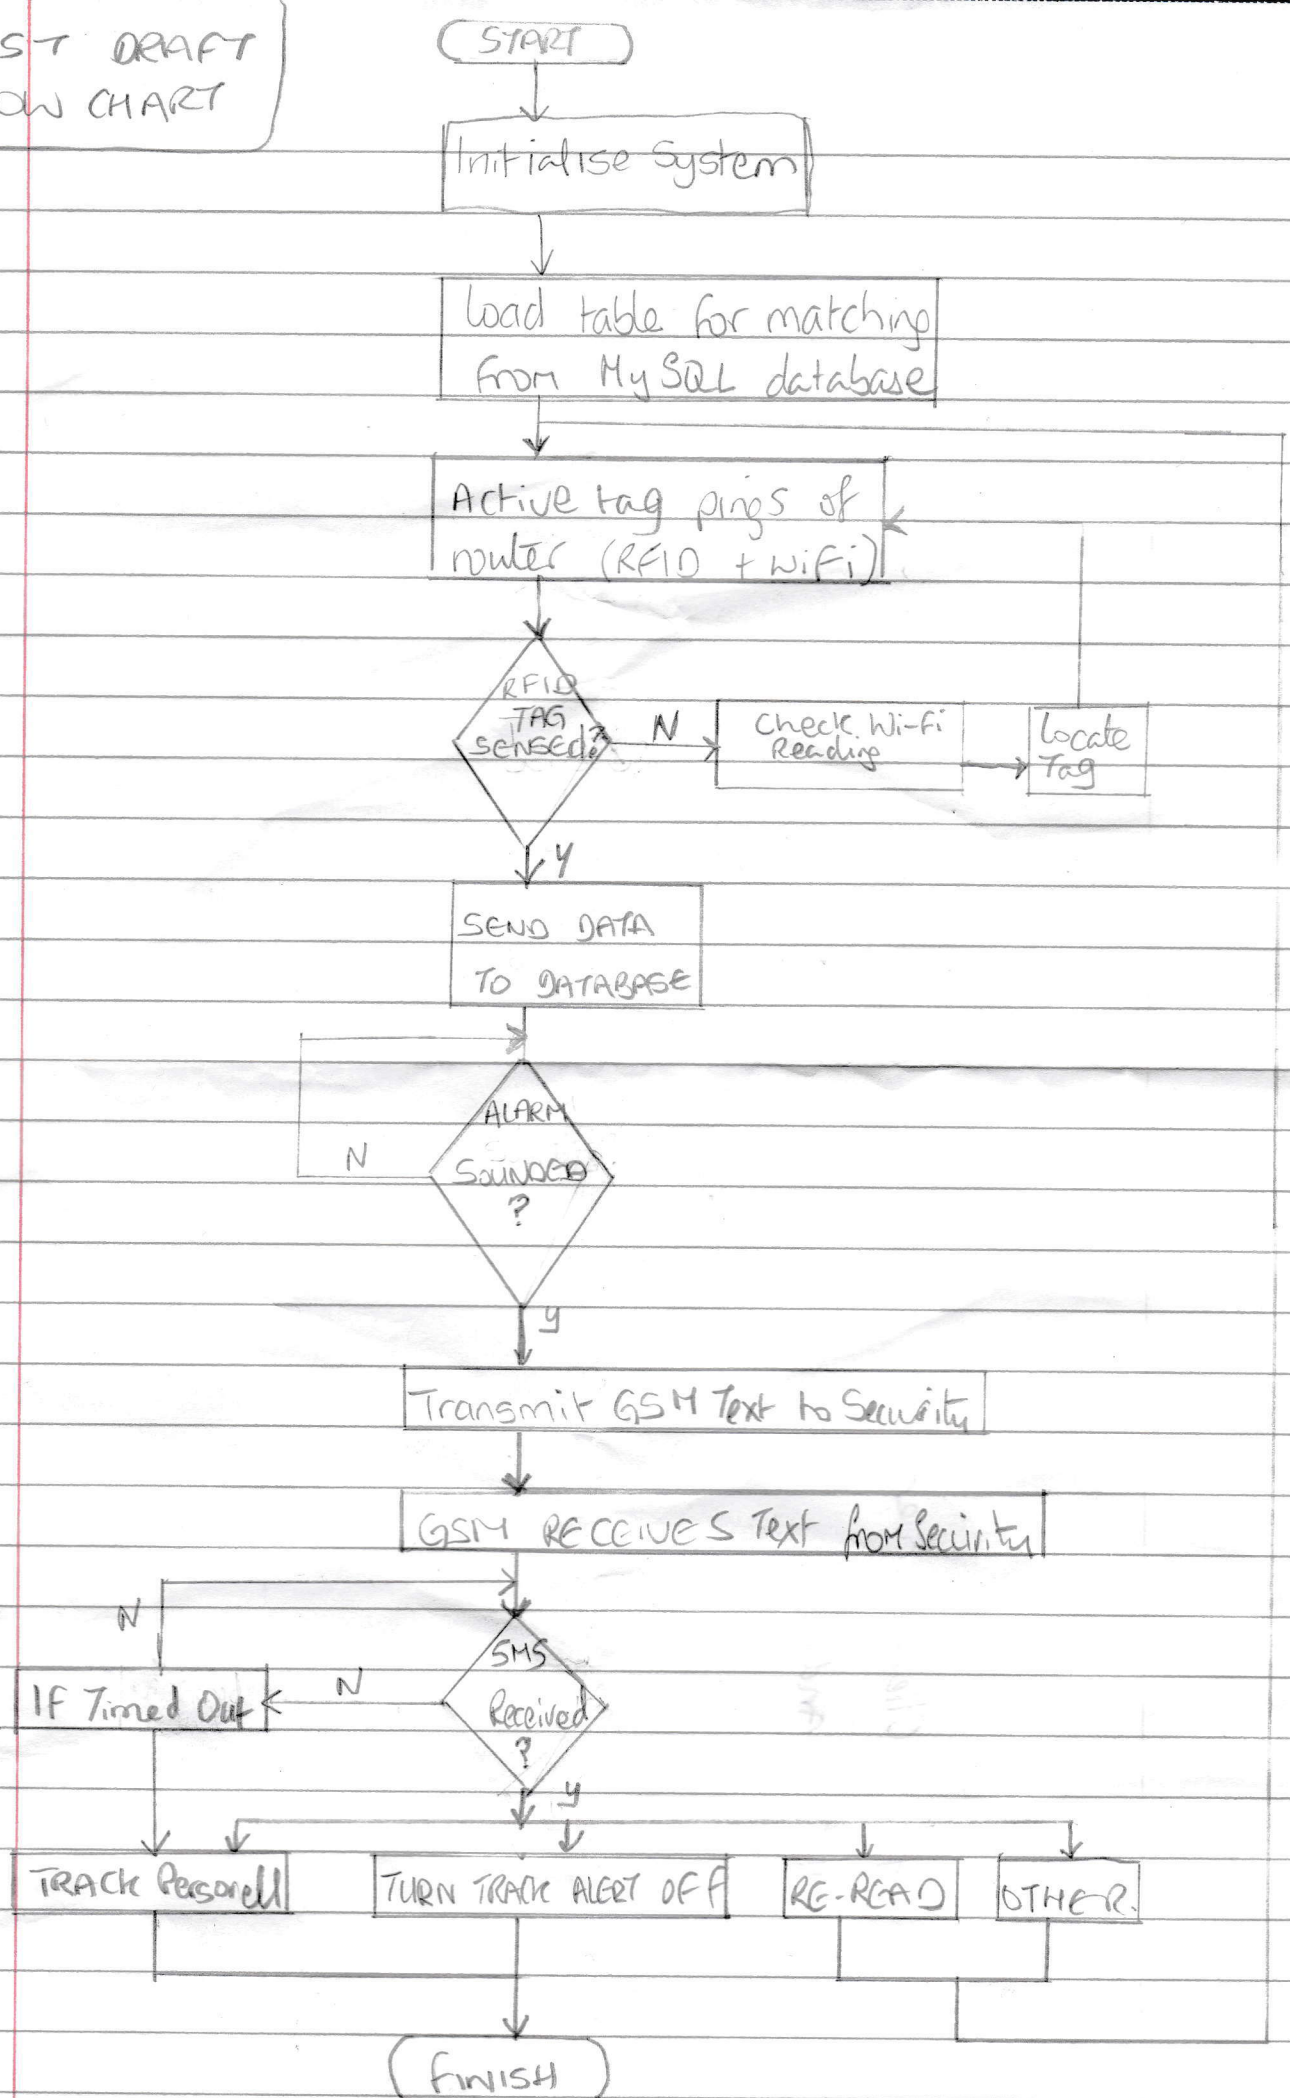 ST DRAFT
OW CHART
START
Initialise System
Load table for matching
from MySQL database
Active tag pings of
router (RFID + WiFi)
RFID
TAG
SENSEd?
N
Check Wi-Fi
Reading
Locate
Tag
Y
SEND DATA
TO DATABASE
ALARM
SOUNDED
?
N
y
Transmit GSM Text to Security
GSM RECEIVES Text from Security
N
SMS
Received
?
N
IF Timed Out
y
TRACK Personell
TURN TRACK ALERT OFF
RE-READ
OTHER.
FINISH